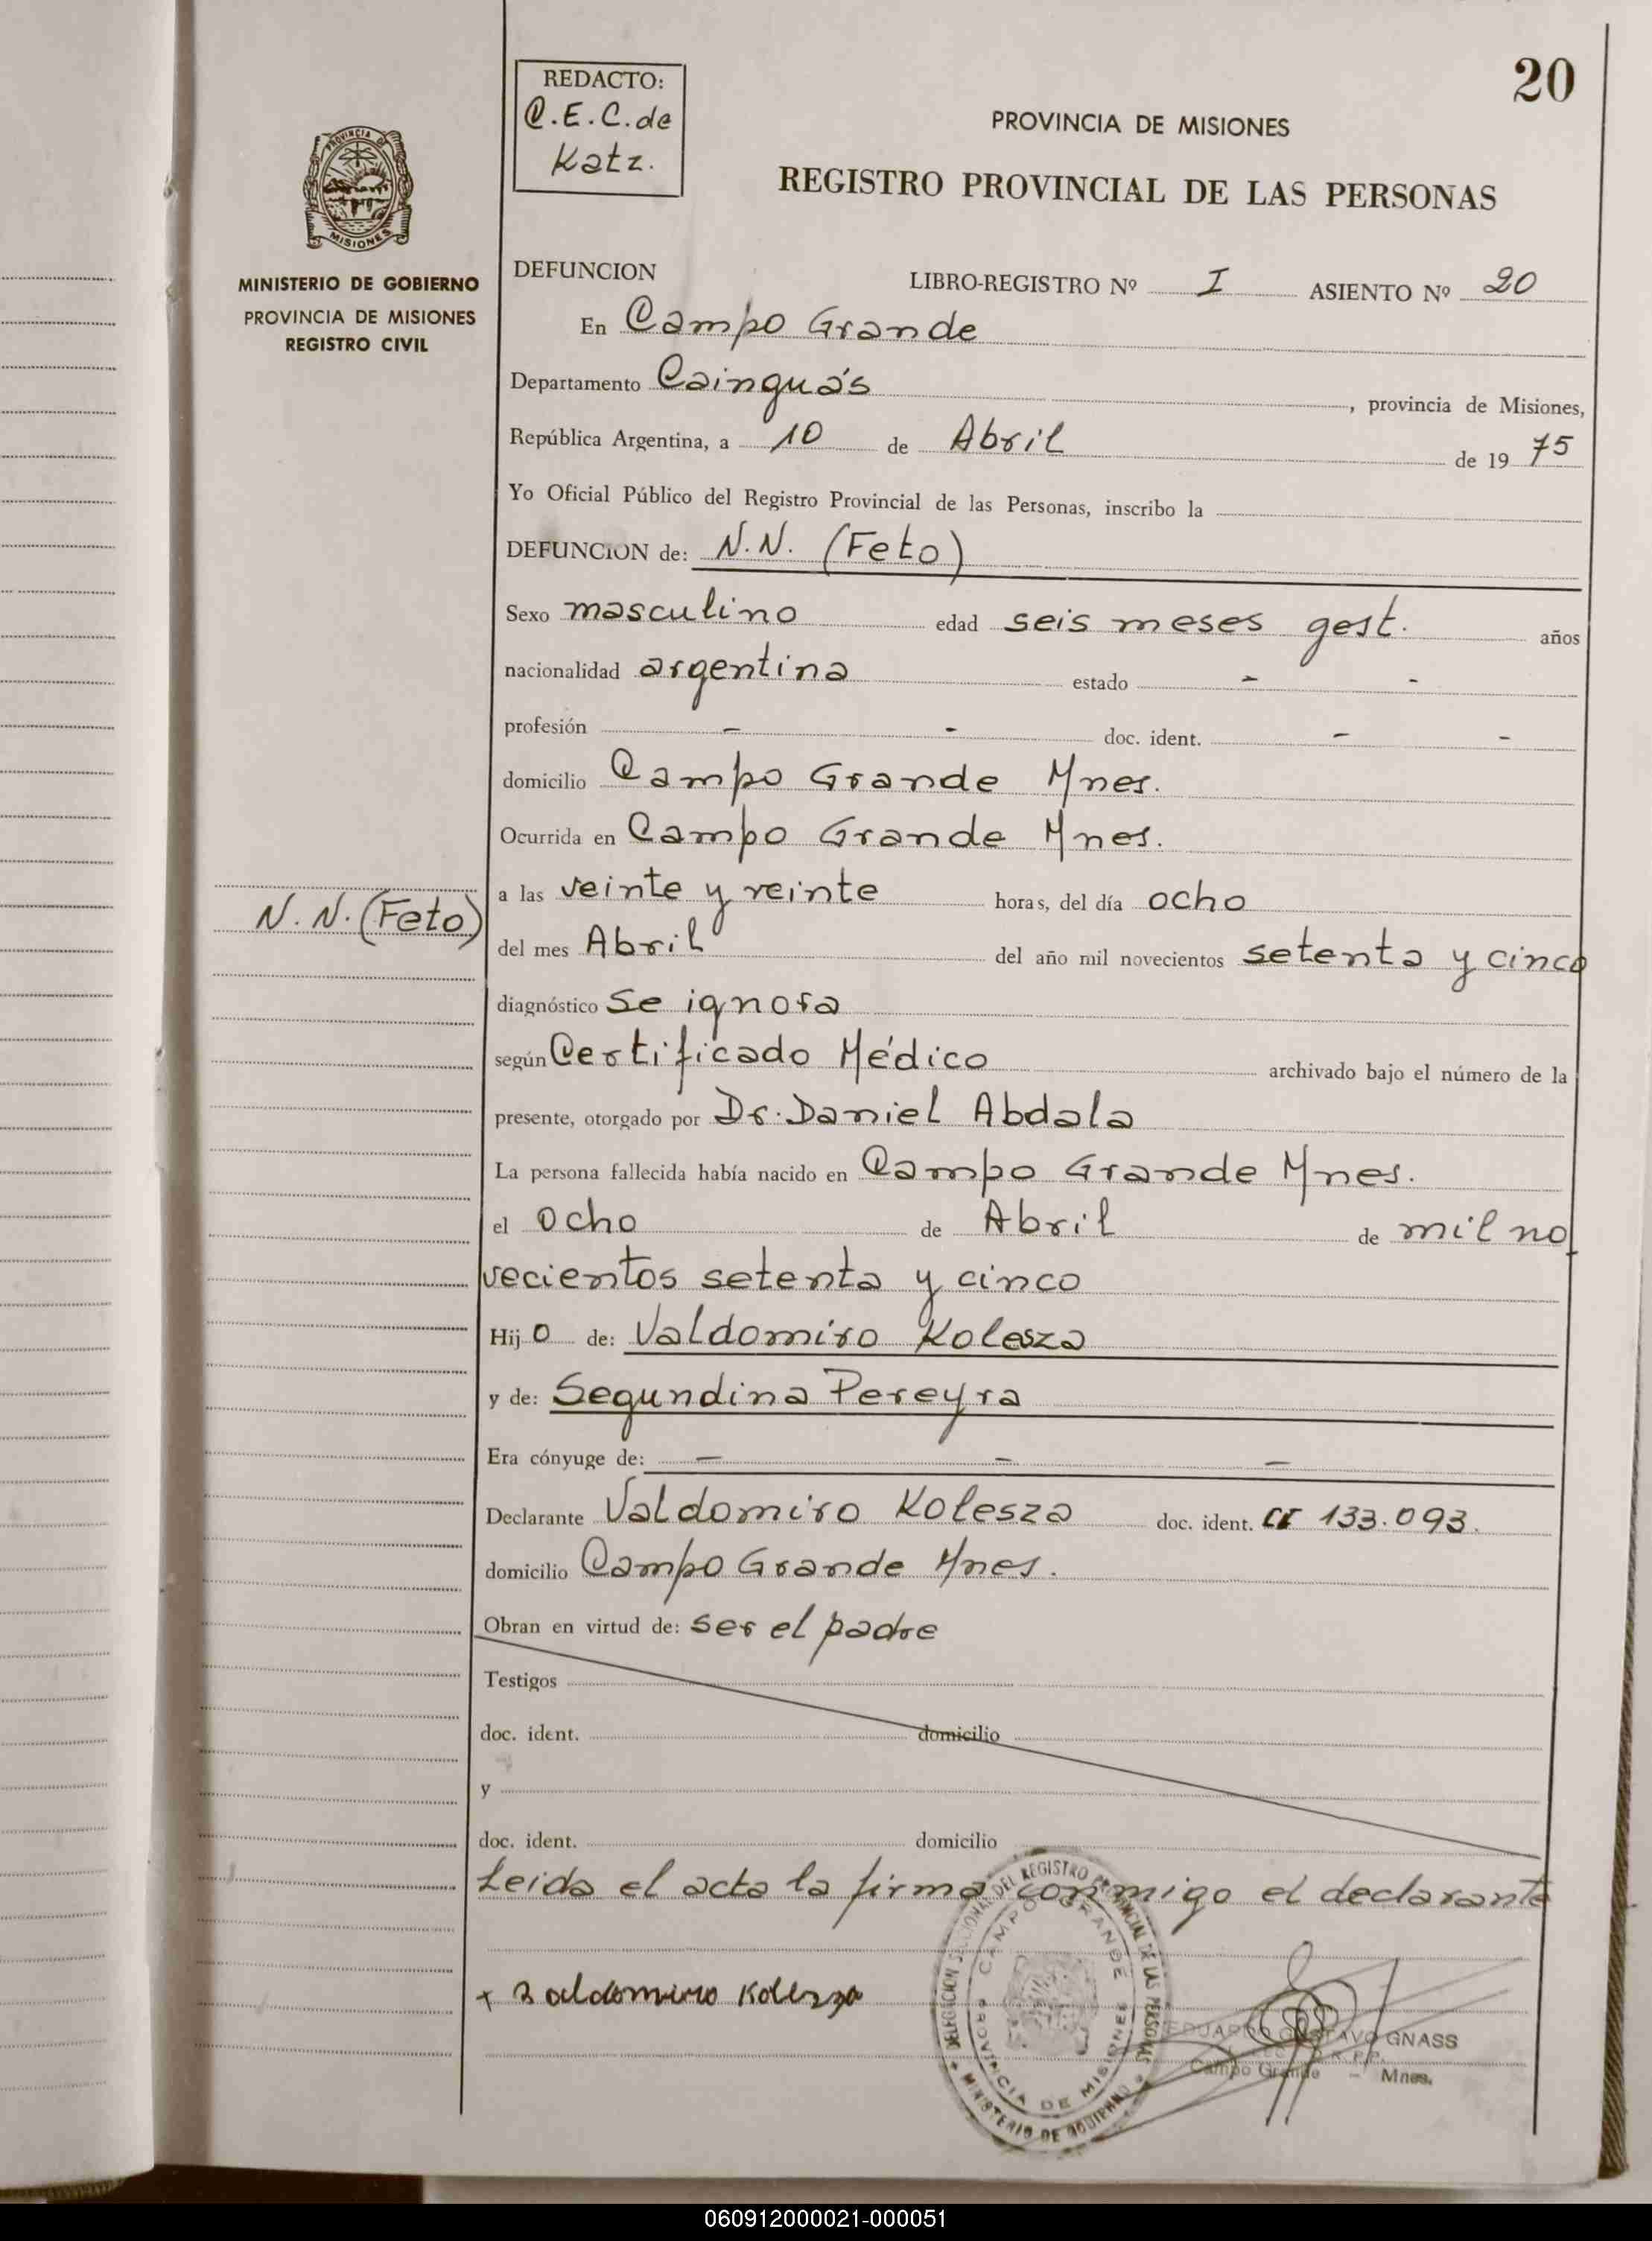 20
REDACTO:
C.E.C. de
Katz.
PROVINCIA DE MISIONES
REGISTRO PROVINCIAL DE LAS PERSONAS
PROVINCIA DE
MISIONES
MINISTERIO DE GOBIERNO
PROVINCIA DE MISIONES
REGISTRO CIVIL
DEFUNCION LIBRO-REGISTRO Nº I ASIENTO Nº 20
En Campo Grande
Departamento Cainguás, provincia de Misiones,
República Argentina, a 10 de Abril de 19 75
Yo Oficial Público del Registro Provincial de las Personas, inscribo la
DEFUNCION de: N.N. (Feto)
Sexo masculino edad seis meses gest. años
nacionalidad argentina estado - -
profesión - - doc. ident. - -
domicilio Campo Grande Mnes.
Ocurrida en Campo Grande Mnes.
a las veinte y veinte horas, del día ocho
N.N. (Feto)
del mes Abril del año mil novecientos setenta y cinco
diagnóstico Se ignora
según Certificado Médico archivado bajo el número de la
presente, otorgado por Dr. Daniel Abdala
La persona fallecida había nacido en Campo Grande Mnes.
el ocho de Abril de mil no
vecientos setenta y cinco
Hijo de: Valdomiro Kolesza
y de: Segundina Pereyra
Era cónyuge de: - - -
Declarante Valdomiro Kolesza doc. ident. CI 133.093.
domicilio Campo Grande Mnes.
Obran en virtud de: ser el padre
Testigos
doc. ident. domicilio
y
doc. ident. domicilio
Leida el acta la firma conmigo el declarante
+ Baldomiro Kolezza
DELEGACION SECCIONAL DEL REGISTRO PROVINCIAL DE LAS PERSONAS
MINISTERIO DE GOBIERNO
CAMPO GRANDE
PROVINCIA DE MISIONES
EDUARDO GUSTAVO GNASS
Campo Grande - Mnes.
060912000021-000051